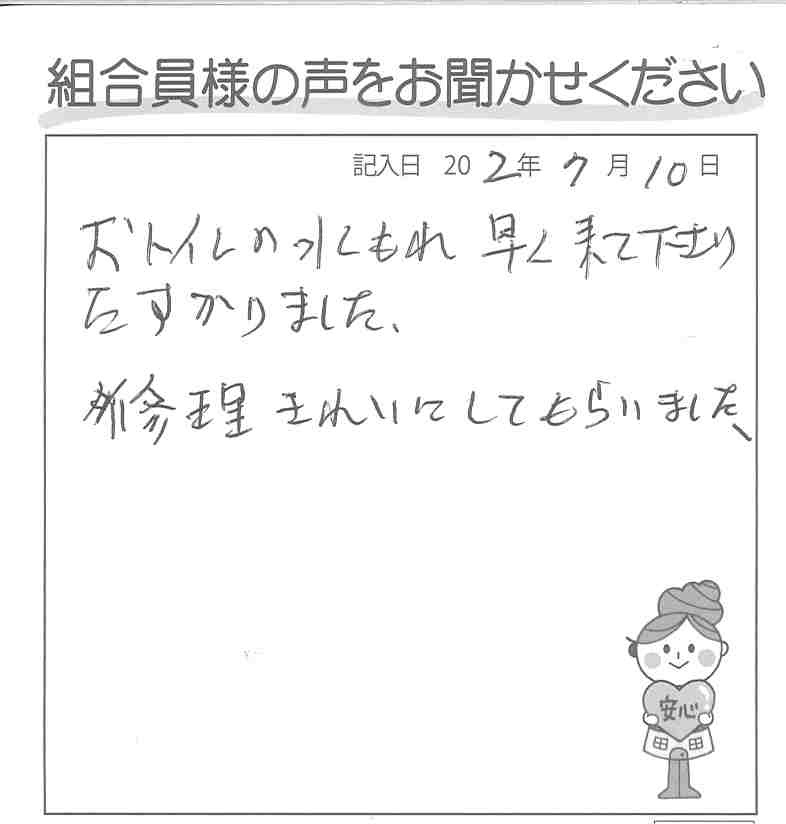 組合員様の声をお聞かせください
記入日 20 2年 7月 10日
おトイレの水もれ 早く来て下さり
たすかりました、
修理 きれいにしてもらいました、
安心